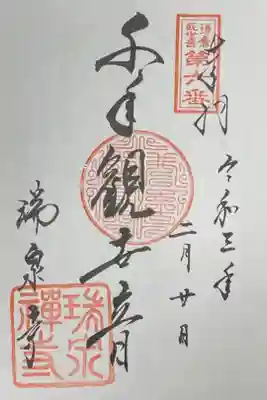 第六番
奉拜
令和三年
二月廿日
千手觀世音
瑞泉寺
瑞泉禪寺